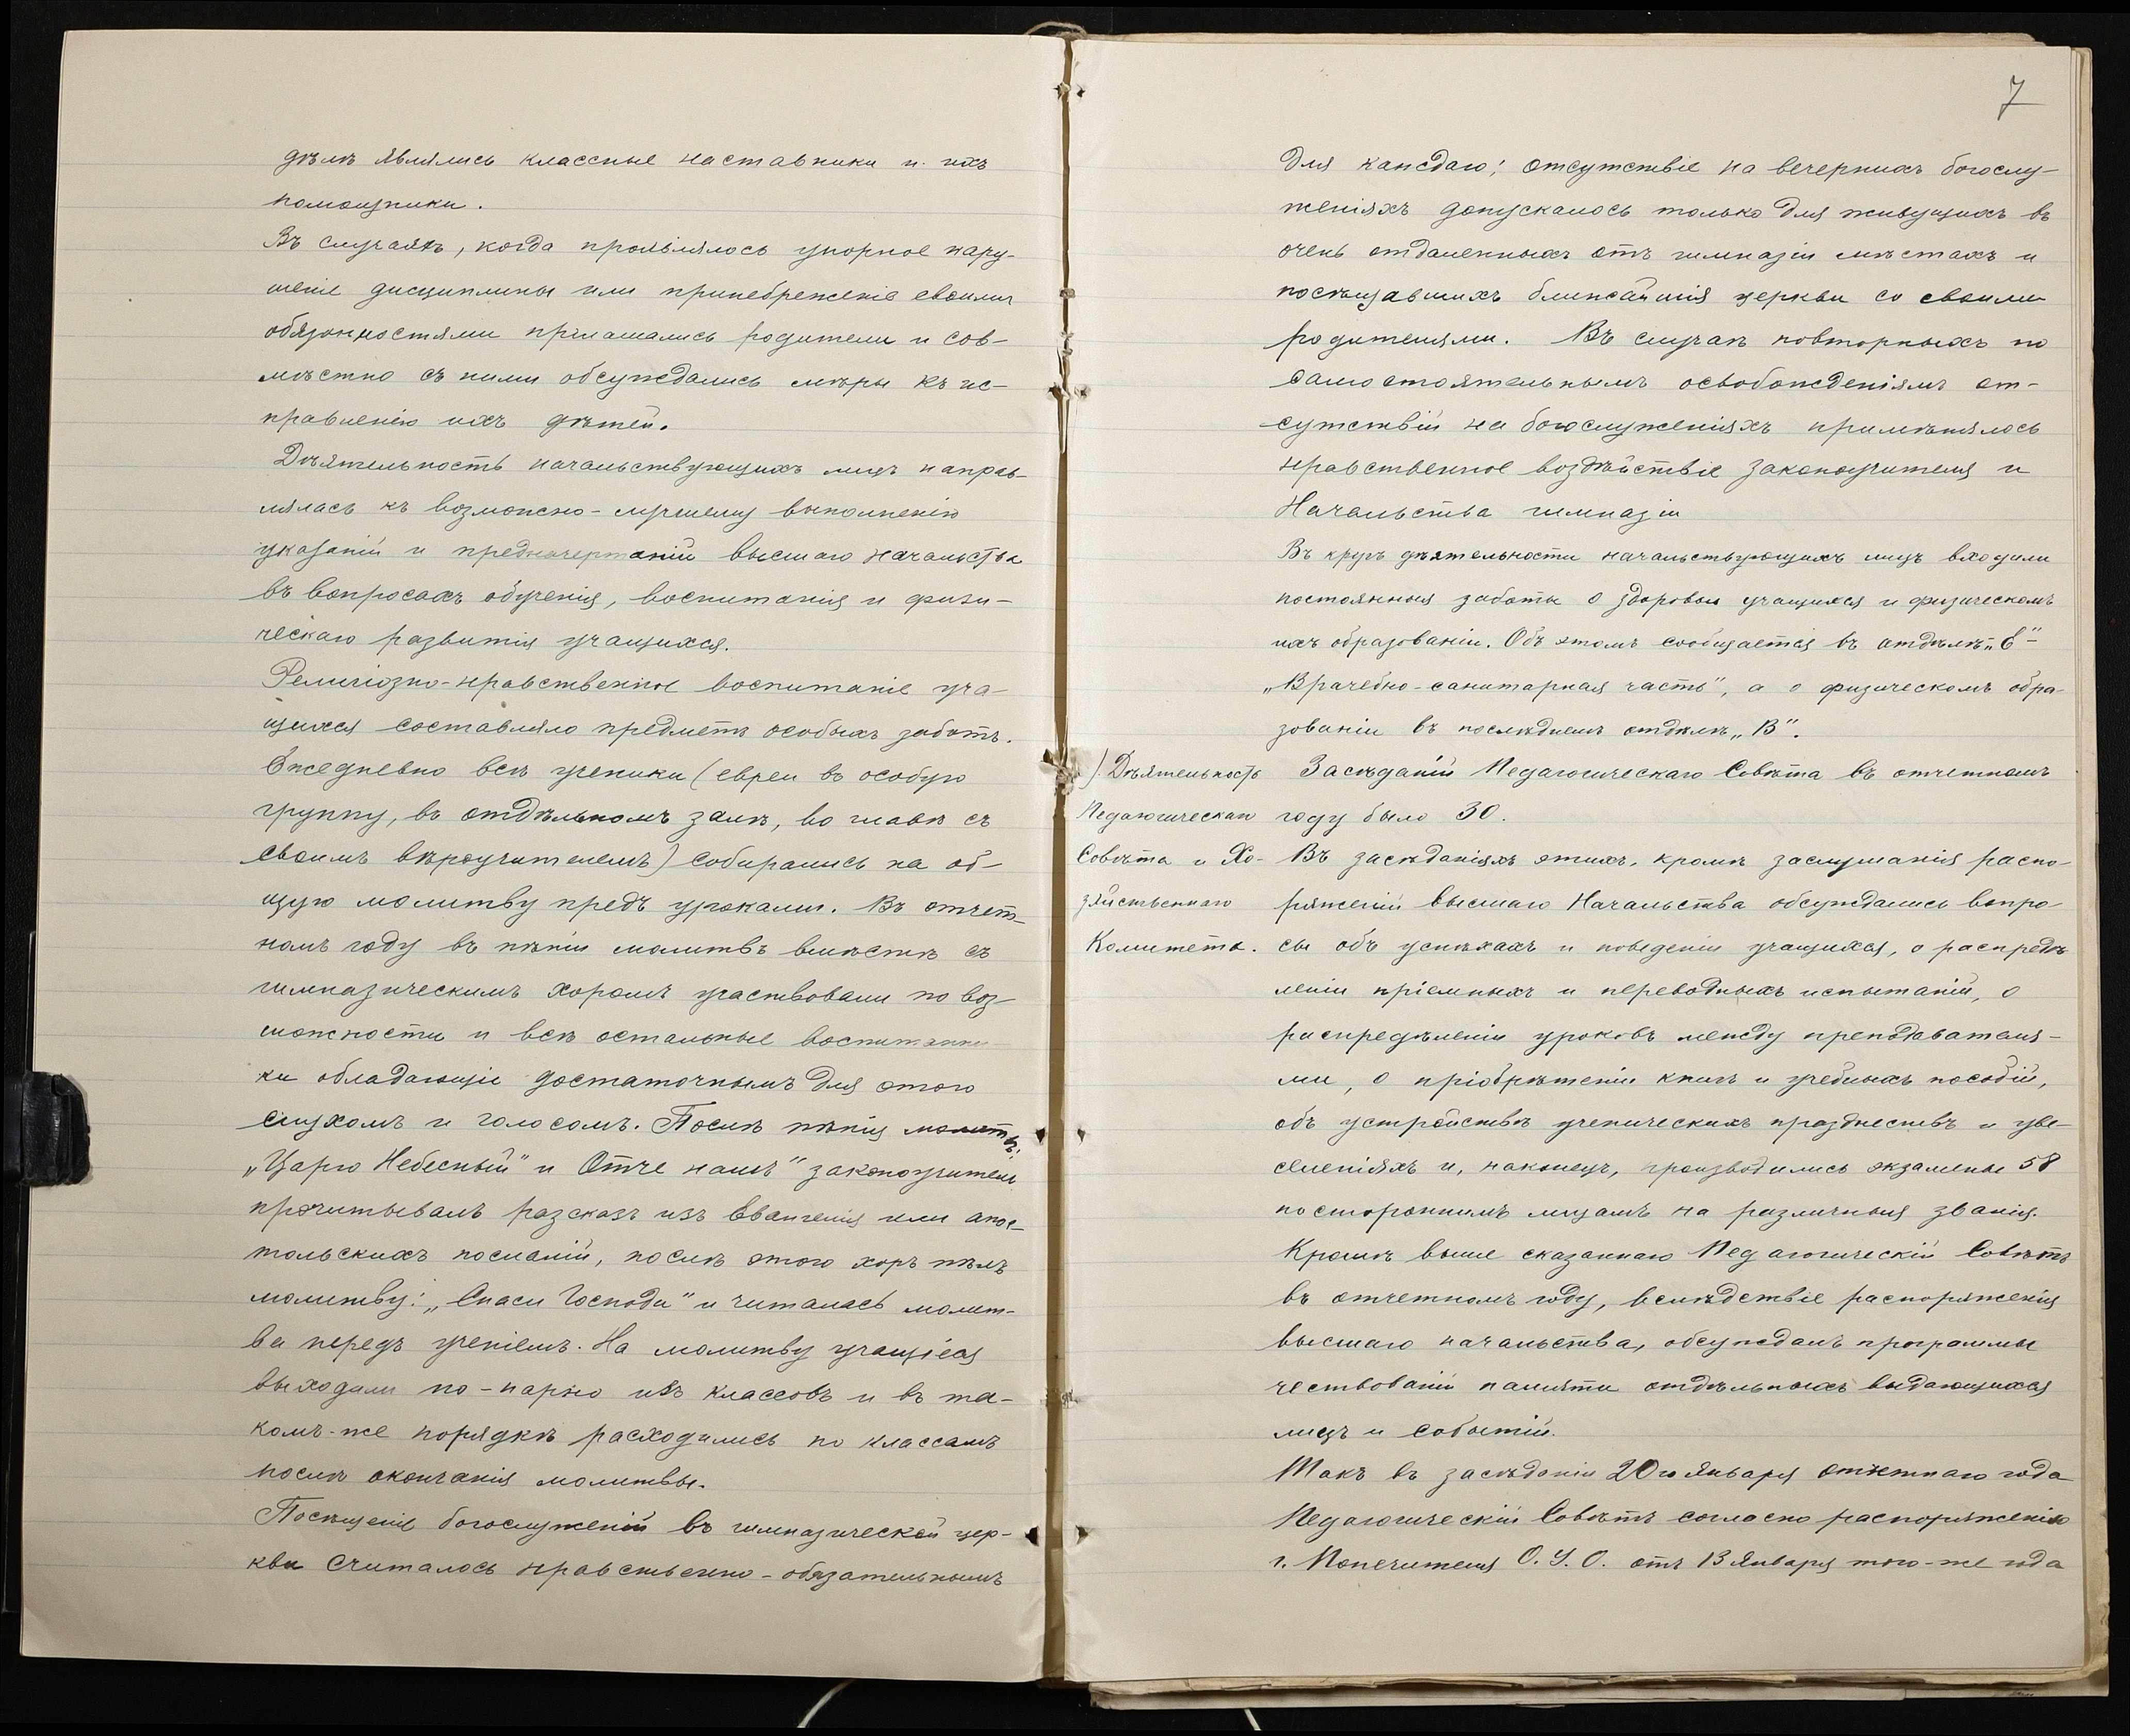 дѣлѣ являлись классные наставники и ихъ
помощники.
Въ случаяхъ, когда проявлялось упорное нару-
шеніе дисциплины или принебреженіе своими
обязанностями приглашались родители и сов-
мѣстно съ ними обсуждались мѣры къ ис-
правленію ихъ дѣтей.
Дѣятельность начальствующихъ лицъ направ-
лялась къ возможно-лучшему выполненію
указаній и предначертаній высшаго начальства
въ вопросахъ обученія, воспитанія и физи-
ческаго развитія учащихся.
Религіозно-нравственное воспитаніе уча-
щихся составляло предметъ особыхъ заботъ.
Ежедневно всѣ ученики (евреи въ особую
группу, въ отдѣльномъ залѣ, во главѣ съ
своимъ вѣроучителемъ) собирались на об-
щую молитву предъ уроками. Въ отчет-
номъ году въ пѣніи молитвъ вмѣстѣ съ
гимназическимъ хоромъ участвовали по воз-
можности и всѣ остальные воспитанни-
ки обладающіе достаточнымъ для этого
слухомъ и голосомъ. Послѣ пѣнія молитвъ:
„Царю Небесный" и Отче нашъ" законоучитель
прочитывалъ разсказъ изъ Евангелія или апос-
тольскихъ посланій, послѣ этого хоръ пѣлъ
молитву: „Спаси Господи" и читалась молит-
ва передъ ученіемъ. На молитву учащіеся
выходили по-парно изъ классовъ и въ та-
комъ-же порядкѣ расходились по классамъ
послѣ окончанія молитвы.
Посѣщеніе богослуженій въ гимназической цер-
кви считалось нравственно-обязательнымъ
7
для каждаго; отсутствіе на вечернихъ богослу-
женіяхъ допускалось только для живущихъ въ
очень отдаленныхъ отъ гимназіи мѣстахъ и
посѣщавшихъ ближайшія церкви со своими
родителями. Въ случаѣ повторныхъ по
самостоятельнымъ освобожденіямъ от-
сутствій на богослуженіяхъ примѣнялось
нравственное воздѣйствіе законоучителя и
Начальства гимназіи
Въ кругъ дѣятельности начальствующихъ лицъ входили
постоянныя заботы о здоровьи учащихся и физическомъ
ихъ образованіи. Объ этомъ сообщается въ отдѣлѣ „б"-
„Врачебно-санитарная часть", а о физическомъ обра-
зованіи въ послѣднемъ отдѣлѣ „В".
) Дѣятельность
Педагогическаго
Совѣта и Хо-
зяйственнаго
Комитета.
Засѣданій Педагогическаго Совѣта въ отчетномъ
году было 30.
Въ засѣданіяхъ этихъ, кромѣ заслушанія распо-
ряженій высшаго Начальства обсуждались вопро-
сы объ успѣхахъ и поведеніи учащихся, о распредѣ-
леніи пріемныхъ и переводныхъ испытаній, о
распредѣленіи уроковъ между преподавателя-
ми, о пріобрѣтеніи книгъ и учебныхъ пособій,
объ устройствѣ ученическихъ празднествъ и уве-
селеніяхъ и, наконецъ, производились экзамены 58
постороннимъ лицамъ на различныя званія.
Кромѣ выше сказаннаго Педагогическій Совѣтъ
въ отчетномъ году, вслѣдствіе распоряженія
высшаго начальства, обсуждалъ программы
чествованій памяти отдѣльныхъ выдающихся
лицъ и событій.
Такъ въ засѣданіи 20го Января отчетнаго года
Педагогическій Совѣтъ согласно распоряженію
г. Попечителя О. У. О. отъ 13 Января того-же года